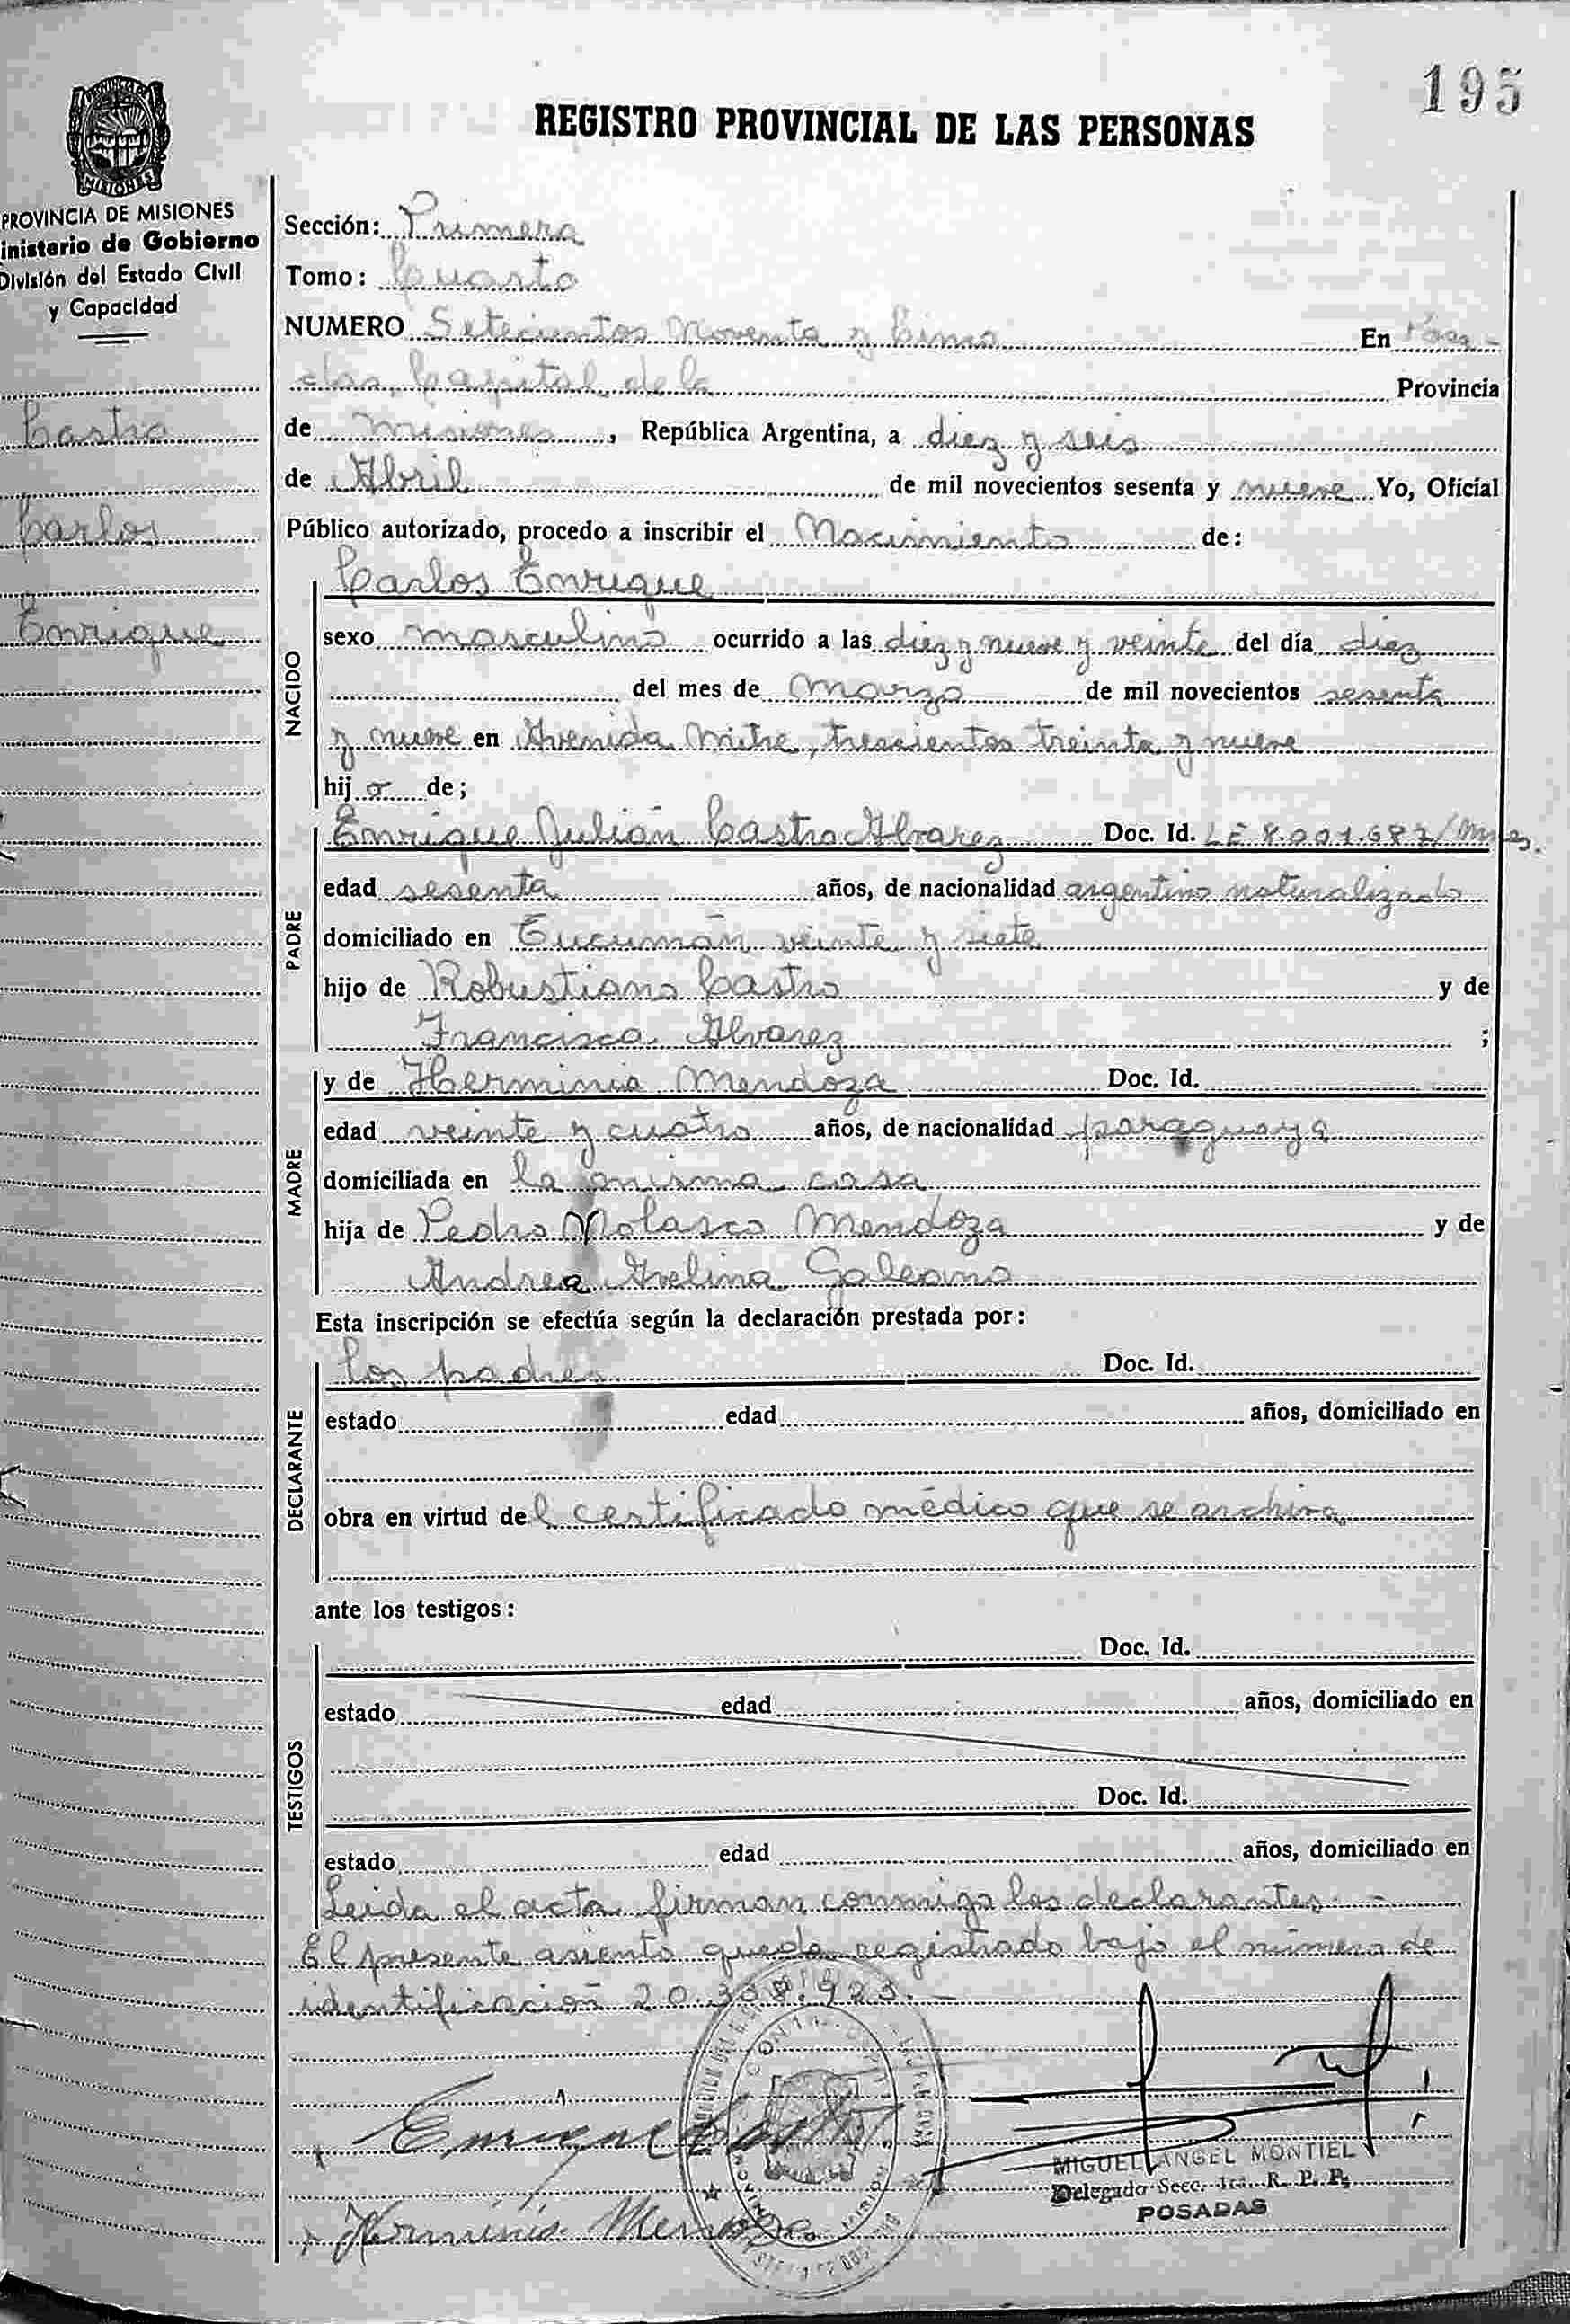 195
REGISTRO PROVINCIAL DE LAS PERSONAS
PROVINCIA DE MISIONES
PROVINCIA DE MISIONES
inisterio de Gobierno
División del Estado Civil
y Capacidad
Castro
Carlos
Enrique
Sección: Primera
Tomo: Cuarto
NUMERO Setecientos Noventa y Cinco En Posa-
das, Capital de la Provincia
de Misiones, República Argentina, a diez y seis
de Abril de mil novecientos sesenta y nueve Yo, Oficial
Público autorizado, procedo a inscribir el Nacimiento de:
NACIDO
Carlos Enrique
sexo masculino ocurrido a las diez y nueve y veinte del día diez
del mes de Marzo de mil novecientos sesenta
y nueve en Avenida Mitre, trescientos treinta y nueve
hijo de;
PADRE
Enrique Julián Castro Alvarez Doc. Id. LE 8.001.687/Mnes.
edad sesenta años, de nacionalidad argentino naturalizado
domiciliado en Tucumán veinte y siete
hijo de Robustiano Castro y de
Francisca Alvarez ;
MADRE
y de Herminia Mendoza Doc. Id.
edad veinte y cuatro años, de nacionalidad paraguaya
domiciliada en la misma casa
hija de Pedro Nolasco Mendoza y de
Andrea Avelina Galeano
Esta inscripción se efectúa según la declaración prestada por:
DECLARANTE
los padres Doc. Id.
estado edad años, domiciliado en
obra en virtud del certificado médico que se archiva
ante los testigos:
TESTIGOS
Doc. Id.
estado edad años, domiciliado en
Doc. Id.
estado edad años, domiciliado en
Leida el acta, firman conmigo los declarantes. -
El presente asiento queda registrado bajo el número de
identificación 20.338.923.-
Enrique Castro
Herminia Mendoza
MIGUEL ANGEL MONTIEL
Delegado Secc. 1ra. R. P. P.
POSADAS